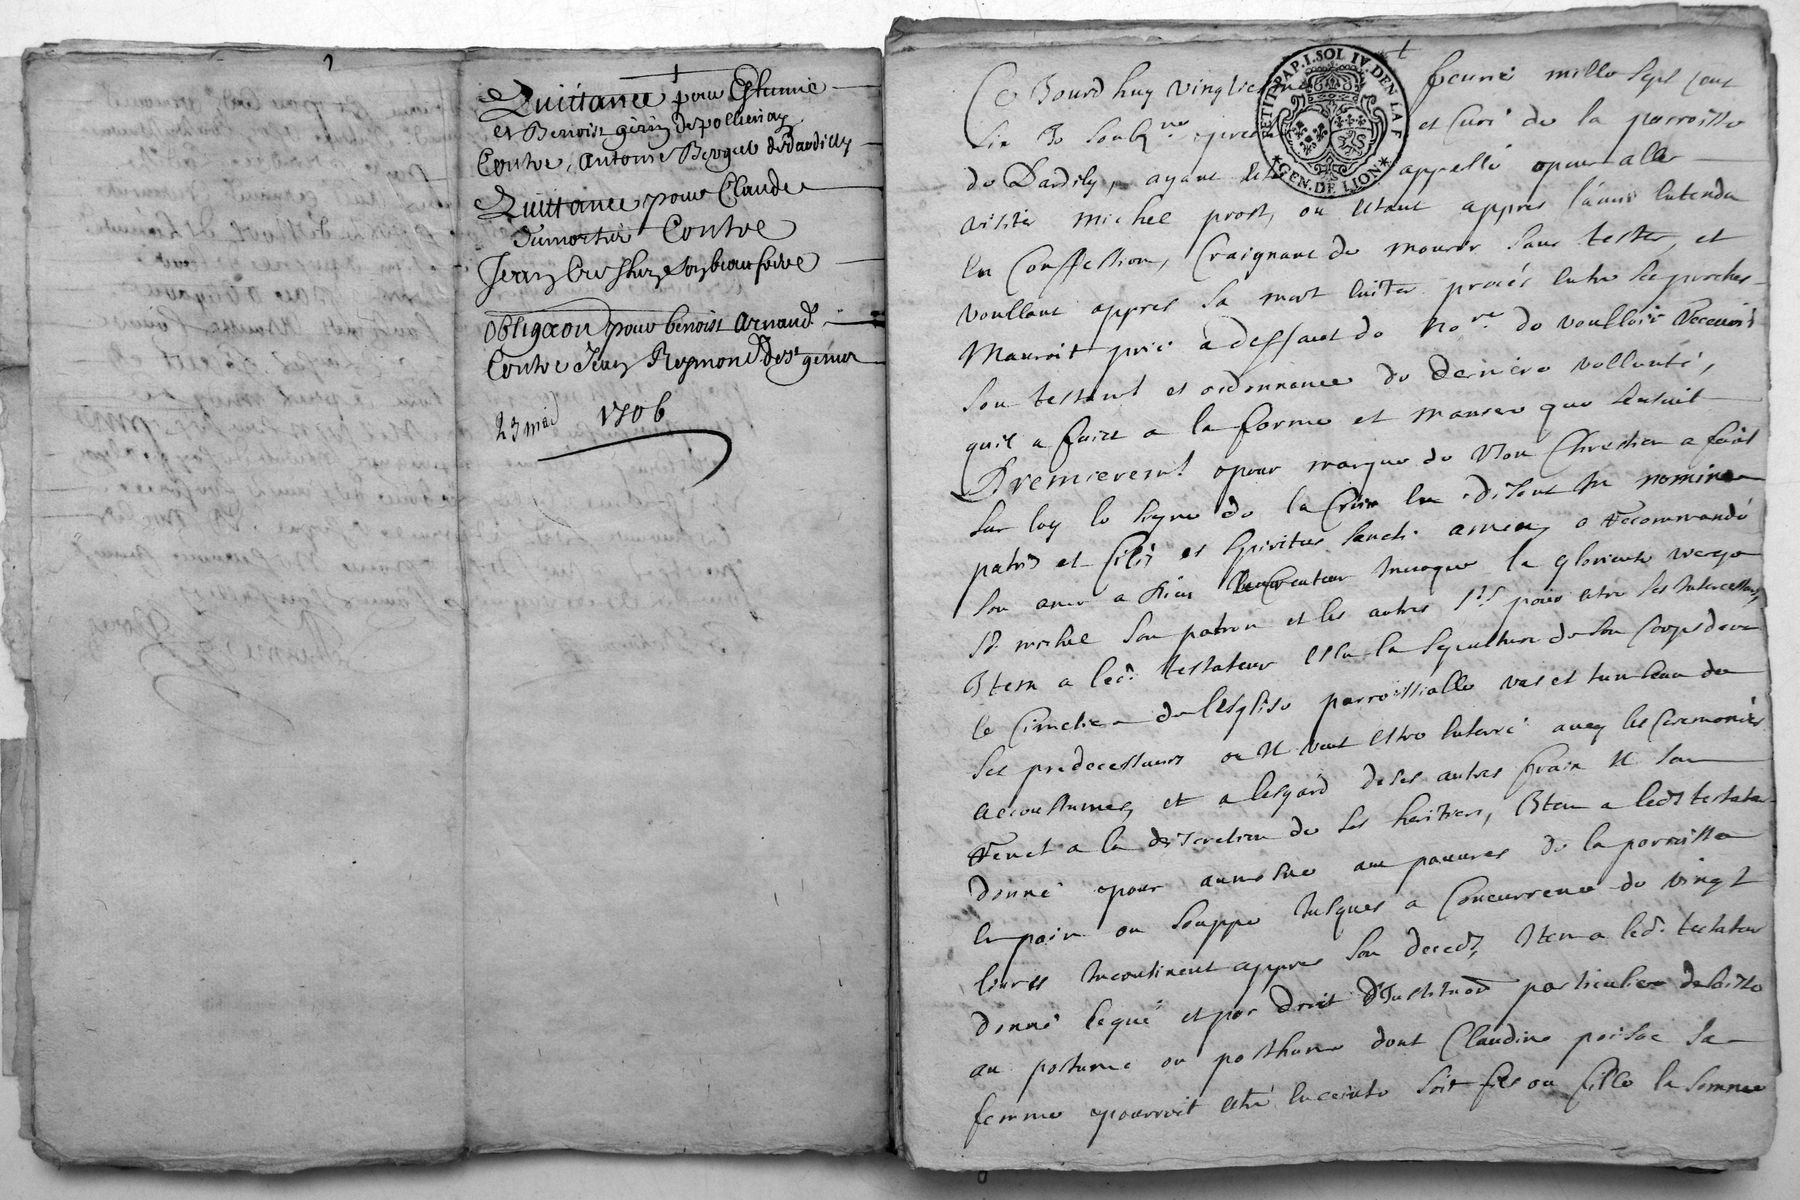 Quittance pour Estienne
et Benoist gerin de pollienay
Contre, antoine Berger de dardilly
Quittance pour Claude
dumortier Contre
Jean son beau frere
Obligaon pour benoist arnaud
Contre Jean Reymond de st genier
23 mid 1706
PETIT PAP. I. SOL IV. DEN LA F
GEN. DE LION
Ce Jourd huy vingtiesme feurié mille sept cent
six Je soubz.ne et Curé de la parroisse
de Dardily, ayant appellé pour aller
visiter michel prost, ou estant appres l'auoir entendu
en Confession, Craignant de mourir sans tester, et
voullant appres sa mort euiter procés entre ses proches
Mauroit prié a deffaut de No.re de voulloir Receuoir
son testament et ordonnance de derniere vollonté,
quil a faict a la forme et maniere que sensuit
Premierement pour marque de vray Chrestien a fait
sur luy le signe de la Croix en disant In nomine
patris et filis et spiritus sancti amen, a recommandé
son ame a Dieu le Createur Inuoque la glorieuse vierge
st. michel son patron et les autres sts pour estre ses Intercesseurs,
Item a led. testateur esleu la sepulture de son Corps dans
le Cimetiere de lesglise parroissialle vas et tumbeau de
ses predecesseurs ou Il veut estre enterré auec les Ceremonies
accoustumez et a lesgard de ses autres frais Il sen
remet a la discretion de ses heritiers, Item a led. testateur
donné pour aumosne aux pauures de la parroisse
en pain ou souppe Jusques a Concurrence de vingt
liures Incontinent appres son deced, Item a led. testateur
donné legué et par droit d'Institution particuliere delaissé
au postume ou posthume dont Claudine poisae sa
femme pourroit estre enceinte soit fils ou fille la somme